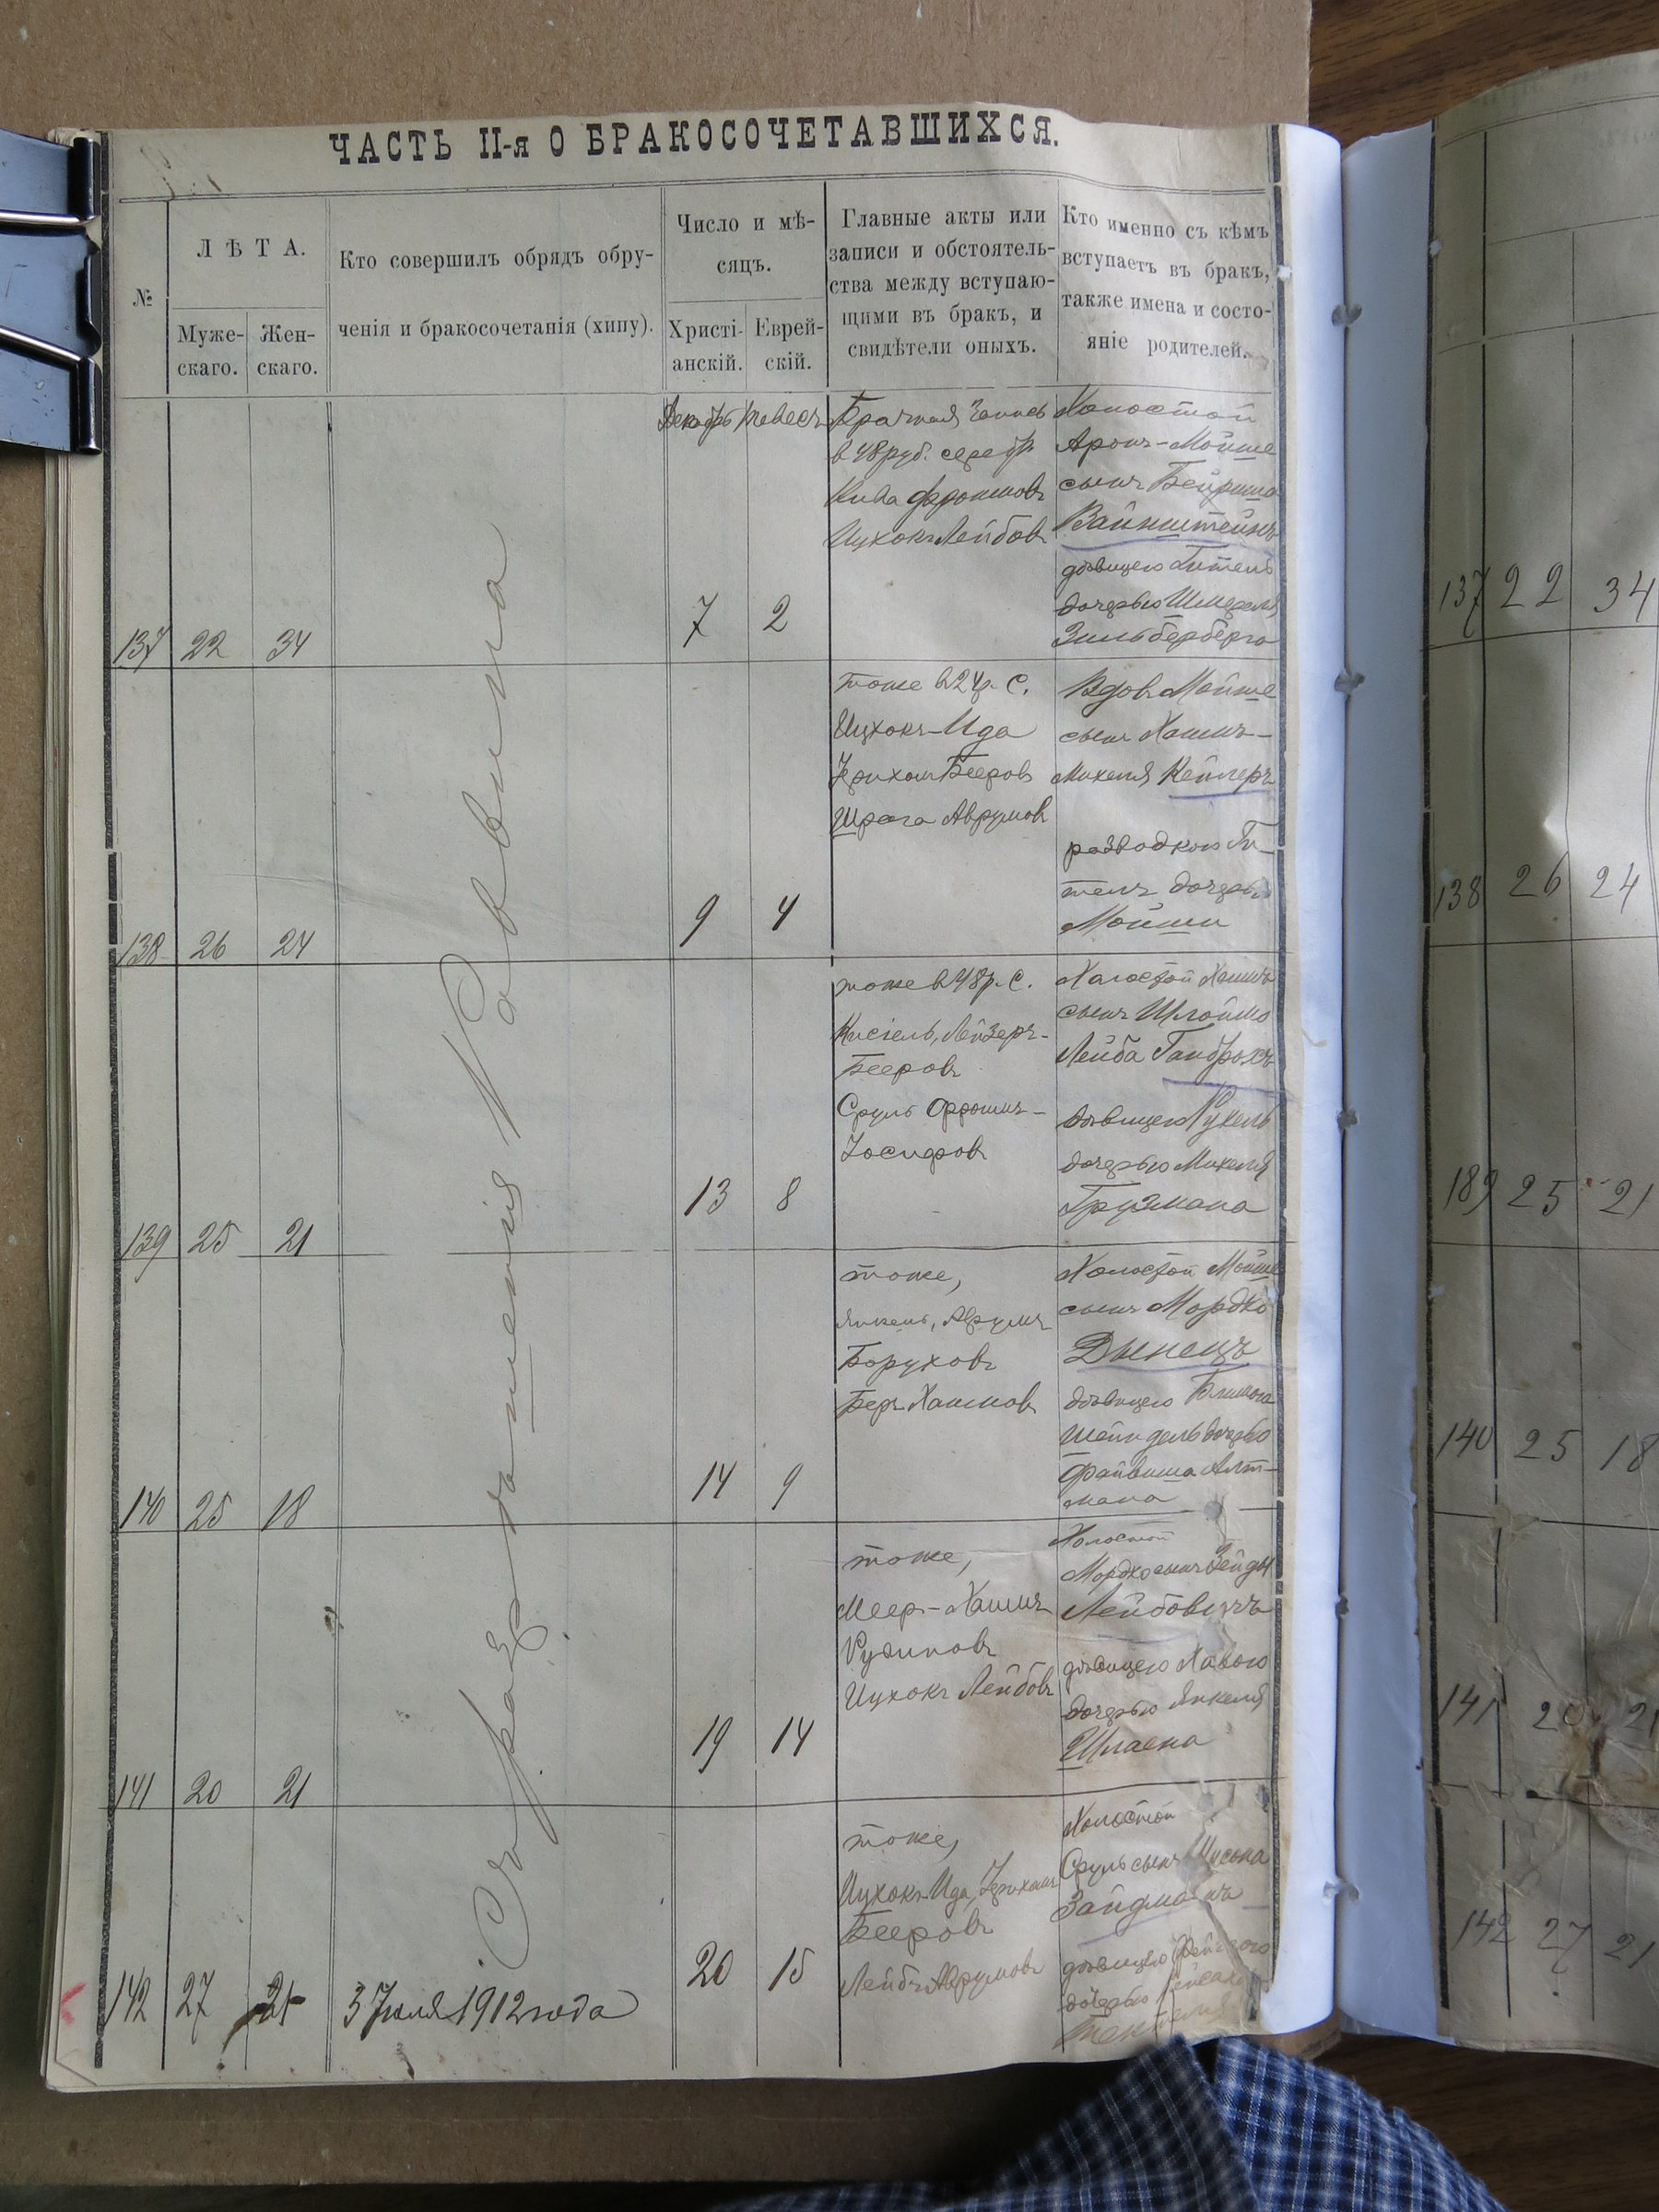 ЧАСТЬ II-я О БРАКОСОЧЕТАВШИХСЯ.
№
ЛѢТА.
Муже-
скаго.
Жен-
скаго.
Кто совершилъ обрядъ обру-
ченія и бракосочетанія (хипу).
Число и мѣ-
сяцъ.
Христі-
анскій.
Еврей-
скій.
Главные акты или
записи и обстоятель-
ства между вступаю-
щими въ бракъ, и
свидѣтели оныхъ.
Кто именно съ кѣмъ
вступаетъ въ бракъ,
также имена и состо-
яніе родителей.
Съ разрѣшенія Раввина
137 22 34
Декабрь Тевесъ
7 2
Брачная Запись
в 48 руб. серебр.
Кива Фроимовъ
Ицхокъ Лейбовъ
Холостой
Аронъ-Мойше
сынъ Бейриша
Вайнштейнъ
дѣвицею Гитель
дочерью Шмереля
Зильберберга
138 26 24
9 4
тоже в 24 р. С.
Ицхокъ-Ида
Іерихом Бееровъ
Шрага Аврумовъ
Вдовъ Мойше
сынъ Хаимъ-
Михеля Кейлеръ
разводкою Ги-
тель дочерью
Мойши
139 25 21
13 8
тоже в 48 р. С.
Кисіель, Лейзеръ-
Бееровъ
Сруль Фроимъ-
Іосифовъ
Холостой Хаимъ
сынъ Шлоймо
Лейба
дѣвицею Рухель
дочерью Михеля
Грузмана
140 25 18
14 9
тоже,
Янкель, Аврумъ
Боруховъ
Беръ Хаимовъ
Холостой Мойше
сынъ Мордко
Дынецъ
дѣвицею Блимою
Шейндель дочерью
Файвиша Алт-
мана
141 20 21
19 14
тоже,
Меер-Хаимъ
Рувиновъ
Ицхокъ Лейбовъ
Холостой
Мордко сынъ Зейды
Лейбовичъ
дѣвицею Хавою
дочерью Янкеля
142 27 21
3 Іюля 1912 года
20 15
тоже,
Ицхокъ Ида, Іерихом
Бееровъ
Лейбъ Аврумовъ
Холостой
Сруль сынъ Нисона
Зайдманъ
дѣвицею
дочерью
137 22 34
138 26 24
139 25 21
140 25 18
141 20 21
142 27 21